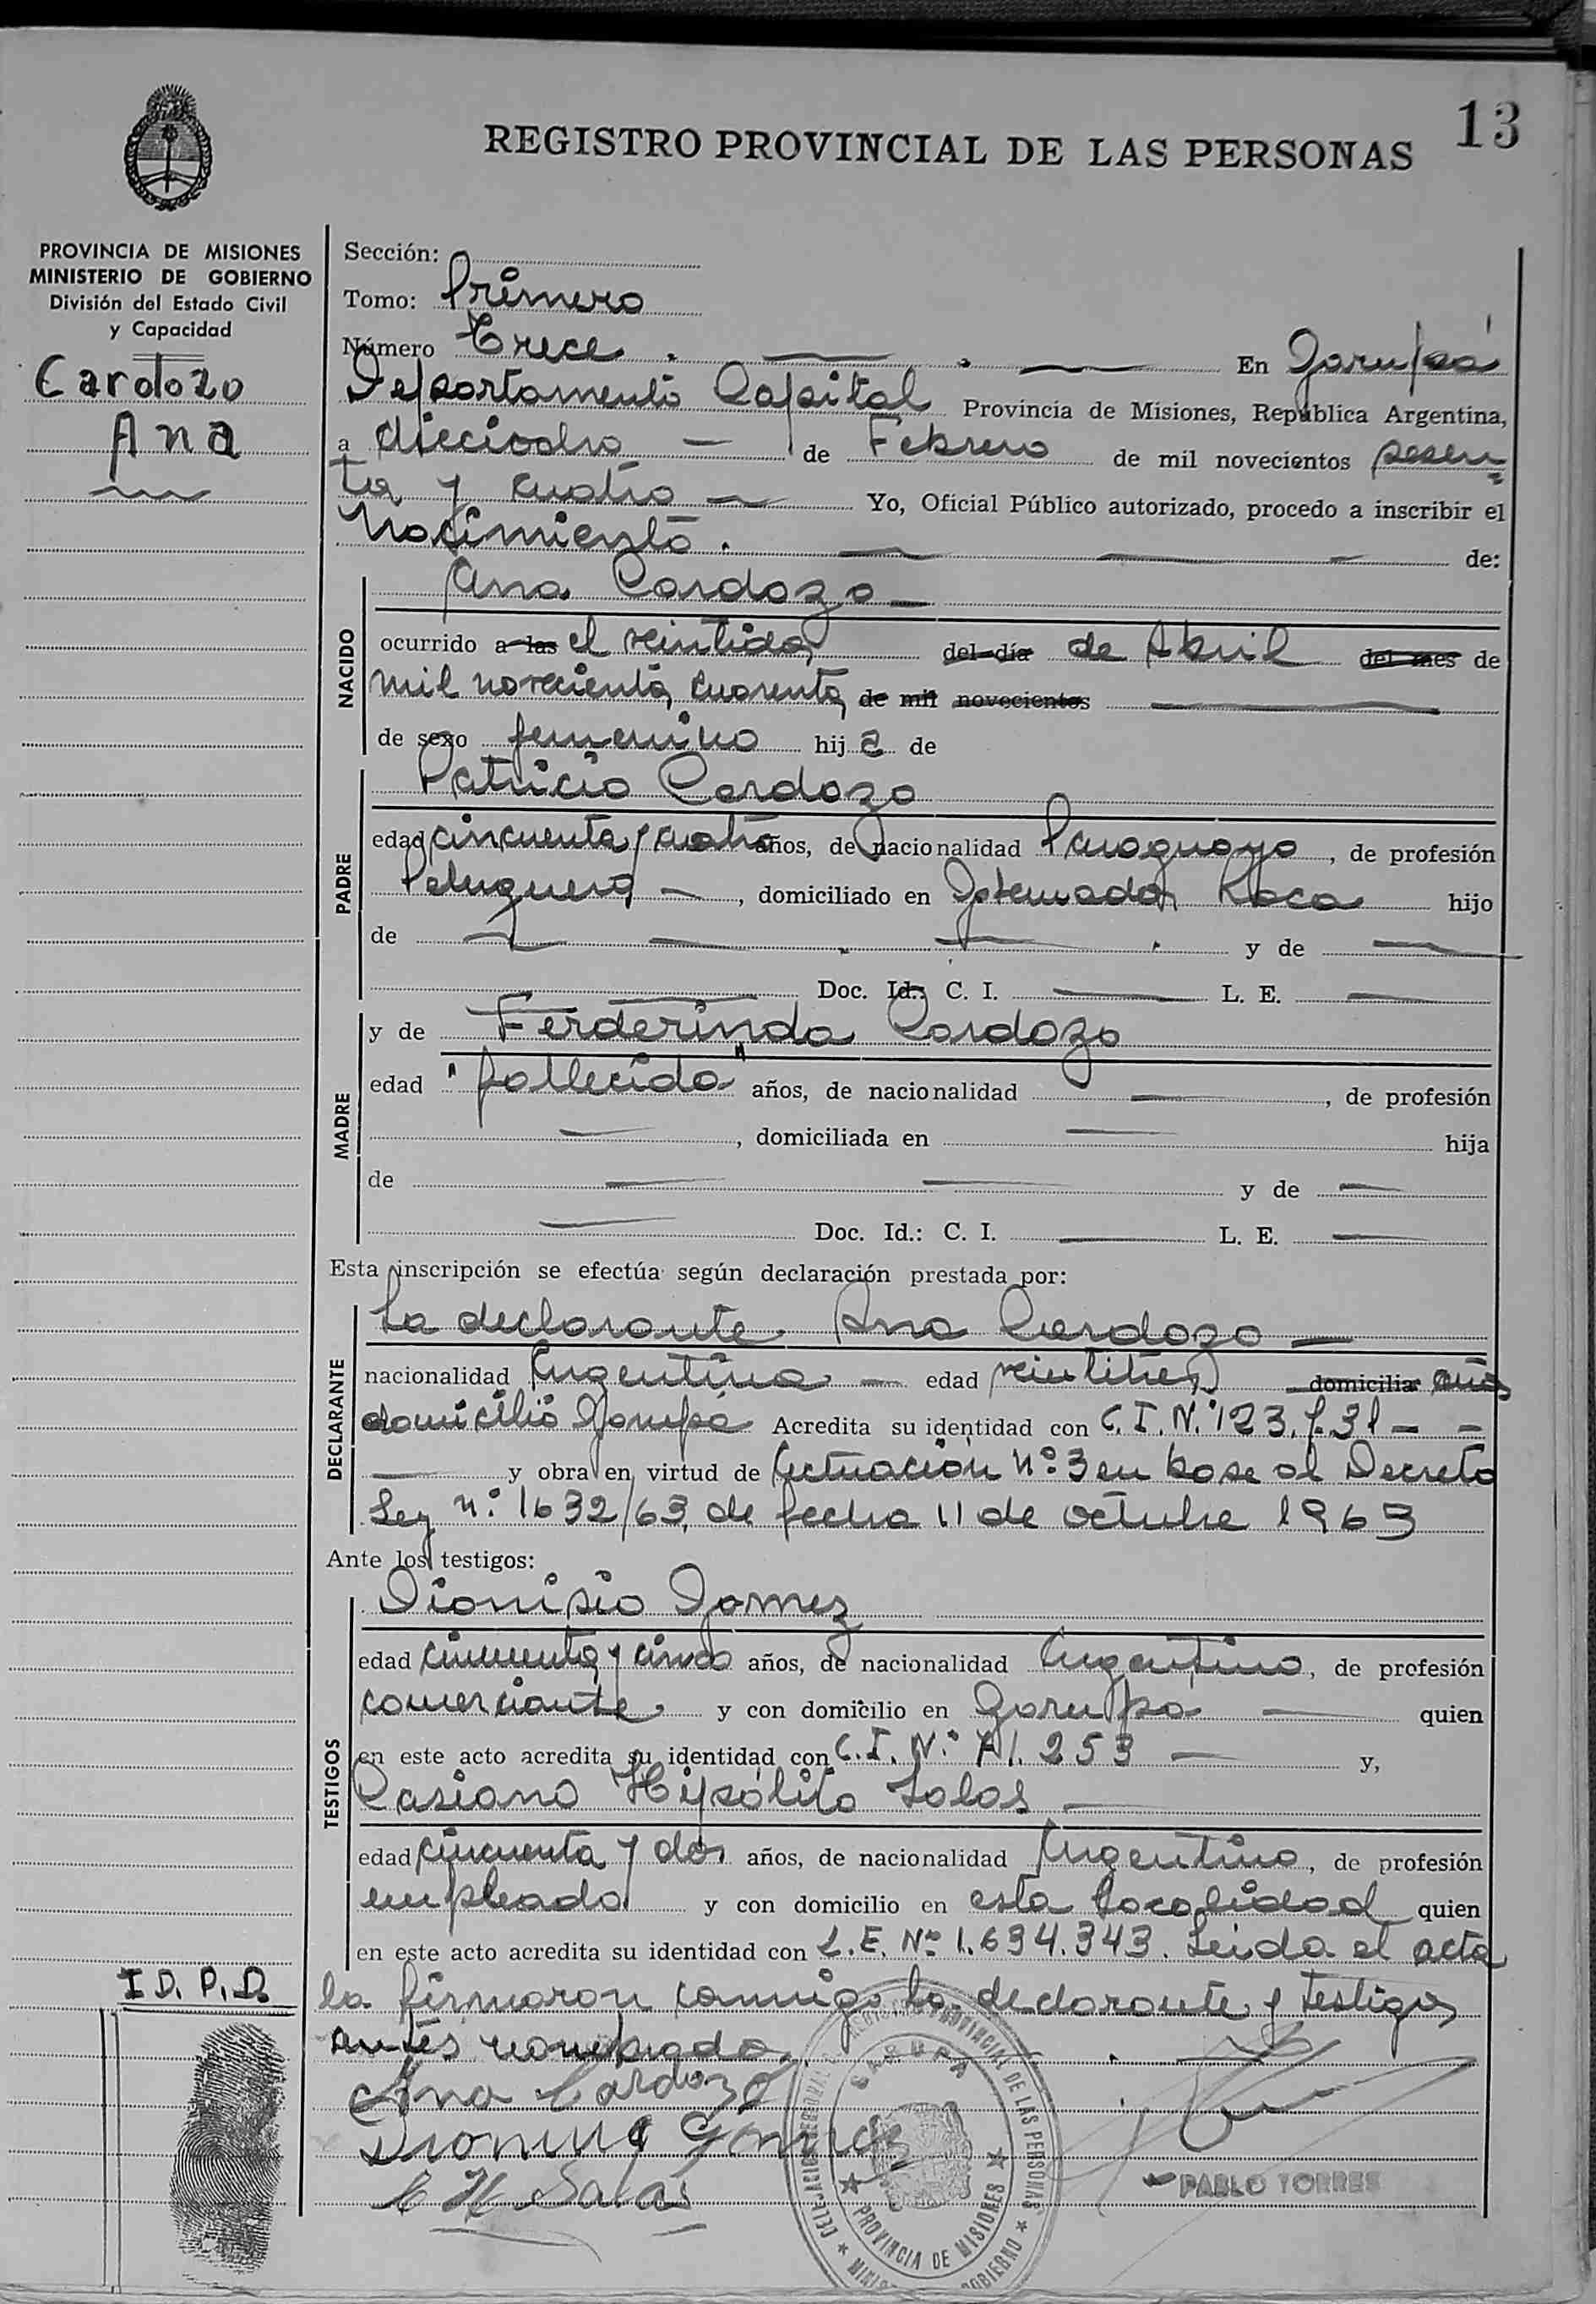 13
REGISTRO PROVINCIAL DE LAS PERSONAS
PROVINCIA DE MISIONES
MINISTERIO DE GOBIERNO
División del Estado Civil
y Capacidad
Cardozo
Ana
Sección:
Tomo: Primero
Número Trece. En Garupá
Departamento Capital Provincia de Misiones, República Argentina,
a dieciocho de Febrero de mil novecientos sesen-
ta y cuatro Yo, Oficial Público autorizado, procedo a inscribir el
Nacimiento. de:
NACIDO
Ana Cardozo
ocurrido a las el veintidos del día de Abril del mes de
mil novecientos cuarenta de mil novecientos
de sexo femenino hija de
PADRE
Patricio Cardozo
edad cincuenta y cuatro años, de nacionalidad Paraguayo, de profesión
Peluquero, domiciliado en Gobernador Roca hijo
de y de
Doc. Id.: C. I. L. E.
MADRE
y de Ferderinda Cardozo
edad "fallecida" años, de nacionalidad , de profesión
, domiciliada en hija
de y de
Doc. Id.: C. I. L. E.
Esta inscripción se efectúa según declaración prestada por:
DECLARANTE
La declarante Ana Cardozo
nacionalidad Argentina edad veintitres domicilia años
domicilio Garupá Acredita su identidad con C. I. N.º 123.731
y obra en virtud de Actuación Nº 3 en base al Decreto
Ley n.º 1632/63, de fecha 11 de octubre 1963
Ante los testigos:
TESTIGOS
Dionisio Gomez
edad cincuenta y cinco años, de nacionalidad Argentino, de profesión
comerciante y con domicilio en Garupá quien
en este acto acredita su identidad con C. I. N.º 71.253 y,
Casiano Hipólito Salas
edad cincuenta y dos años, de nacionalidad Argentino, de profesión
empleado y con domicilio en esta localidad quien
en este acto acredita su identidad con L. E. Nº 1.634.343. Leida el acta
la firmaron conmigo la declarante y testigos
antes nombrado.
I D. P. D.
Ana Cardozo
Dionisio Gomez
C H Salas
GARUPA
PROVINCIAL DE LAS PERSONAS
PROVINCIA DE MISIONES
PABLO TORRES